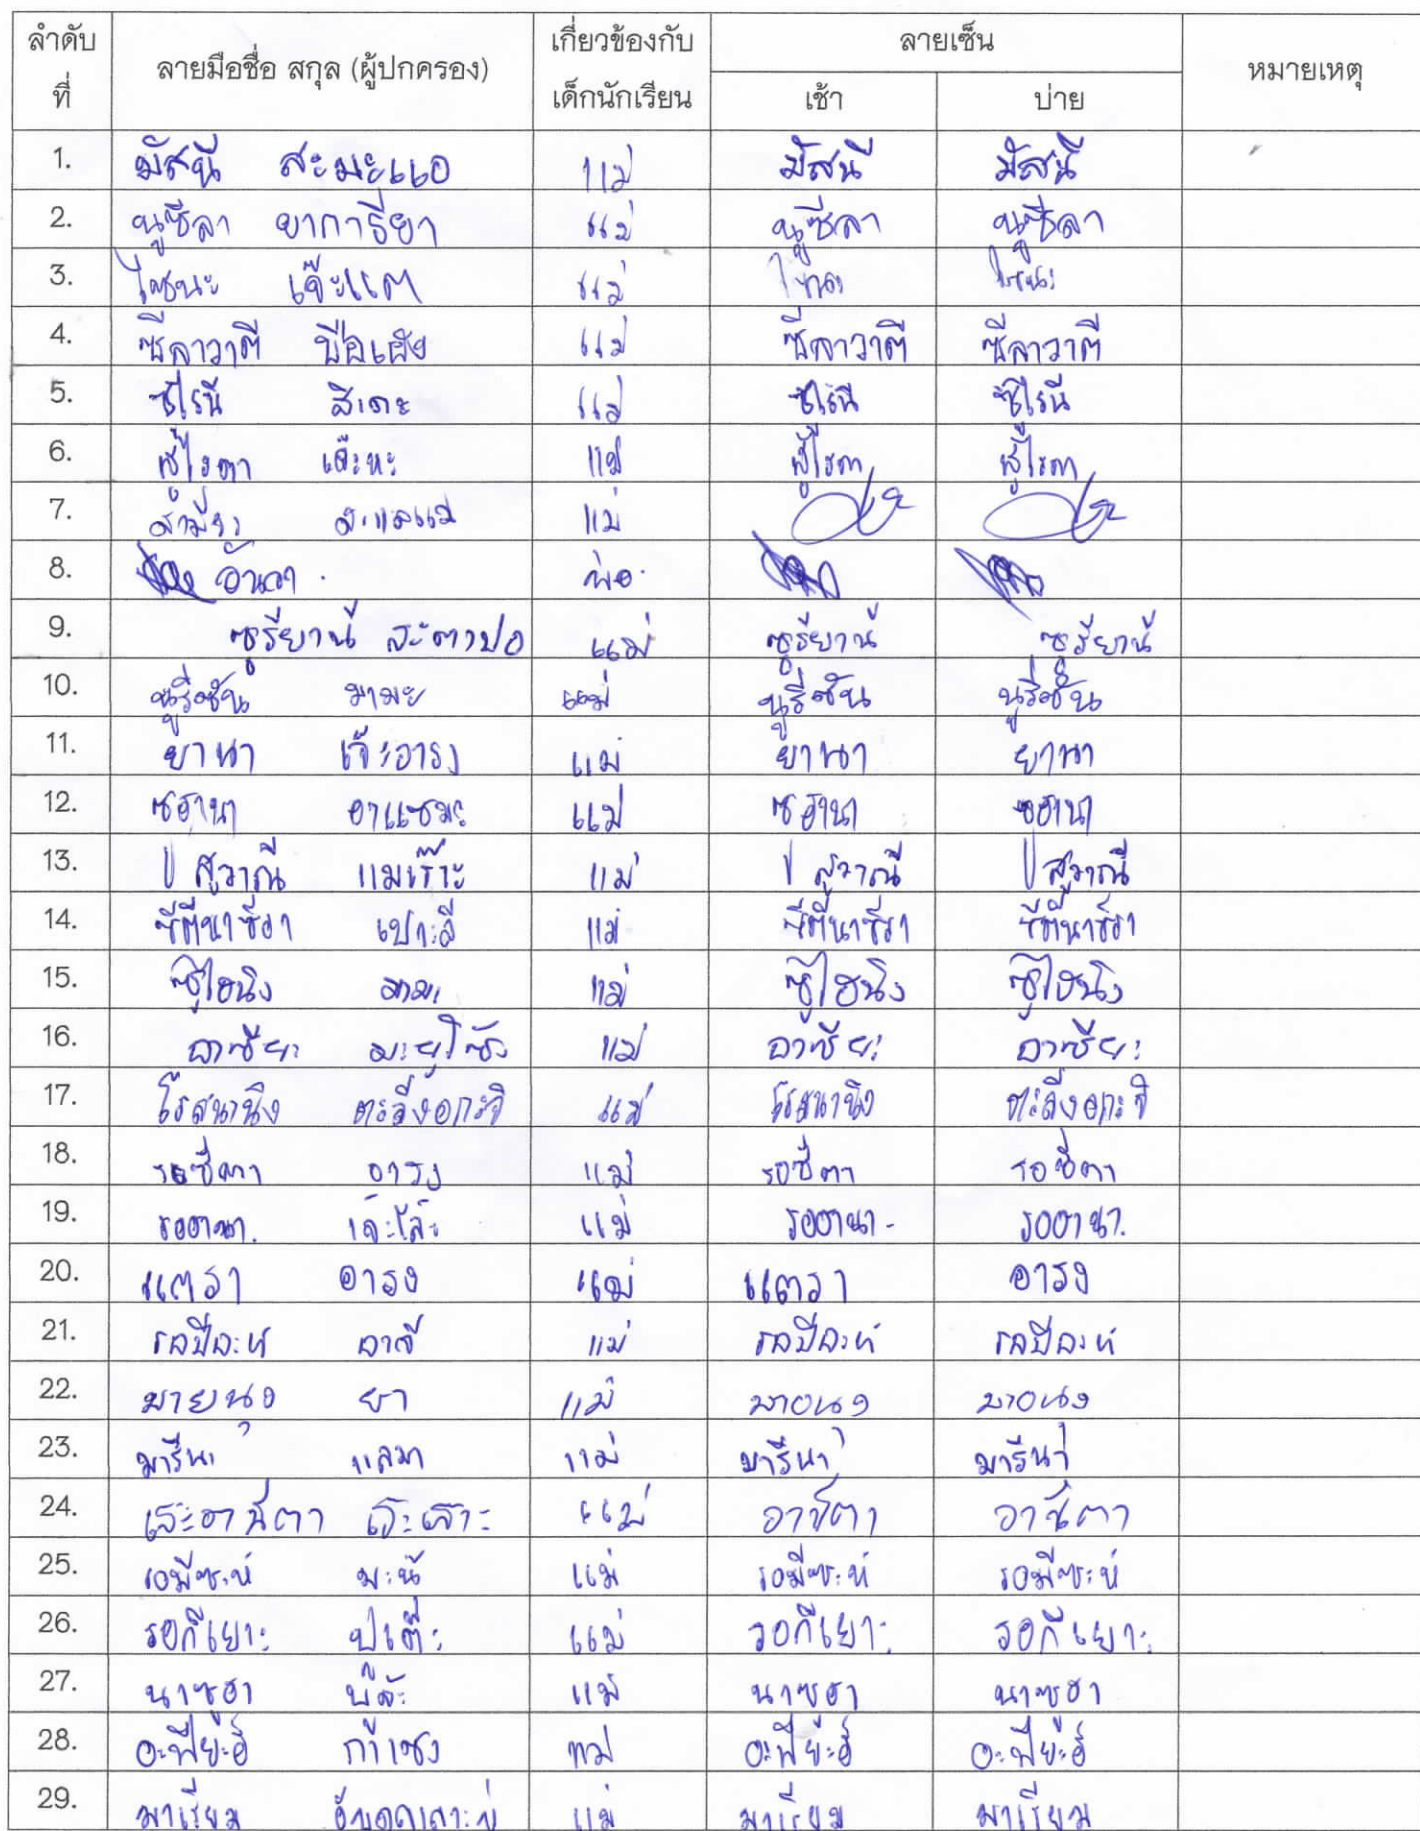 ลำดับที่ ลายมือชื่อ สกุล (ผู้ปกครอง) เกี่ยวข้องกับเด็กนักเรียน ลายเซ็น หมายเหตุ
เช้า บ่าย
1. มัสนี สะมะแอ แม่ มัสนี มัสนี
2. นูซีลา ยาการียา แม่ นูซีลา นูซีลา
3. ไซนะ เจ๊ะแต แม่
4. ซีลาวาตี แม่ ซีลาวาตี ซีลาวาตี
5. ซูไรนี สิเดะ แม่ ซูไรนี ซูไรนี
6. แม่
7. แม่
8. พ่อ
9. ซูรียานี สะตาปอ แม่ ซูรียานี ซูรียานี
10. นูรีซัน มามะ แม่ นูรีซัน นูรีซัน
11. ยานา เจ๊ะอารง แม่ ยานา ยานา
12. ซอานา อาแซมะ แม่ ซอานา ซอานา
13. สูวาณี แม่ สูวาณี สูวาณี
14. ซีตีนาซีรา เปาะลี แม่ ซีตีนาซีรา ซีตีนาซีรา
15. ซูไฮนิง มามะ แม่ ซูไฮนิง ซูไฮนิง
16. อาซียะ มะยูโซ๊ะ แม่ อาซียะ อาซียะ
17. โรสนานิง ตะลีงอกะจิ แม่ โรสนานิง ตะลีงอกะจิ
18. รอซีตา อารง แม่ รอซีตา รอซีตา
19. รออานา. แม่ รออานา- รออานา.
20. แตรา อารง แม่ แตรา อารง
21. รลปีละห์ อาลี แม่ รลปีละห์ รลปีละห์
22. ยา แม่
23. มารีนา แลมา แม่ มารีนา มารีนา
24. แม่
25. รอมีซะห์ มะนี แม่ รอมีซะห์ รอมีซะห์
26. รอกีเยาะ ปูเต๊ะ แม่ รอกีเยาะ รอกีเยาะ
27. นาซูฮา แม่ นาซูฮา นาซูฮา
28. อะฟีย๊ะฮ์ กาเซง แม่ อะฟีย๊ะฮ์ อะฟีย๊ะฮ์
29. มาเรียม แม่ มาเรียม มาเรียม